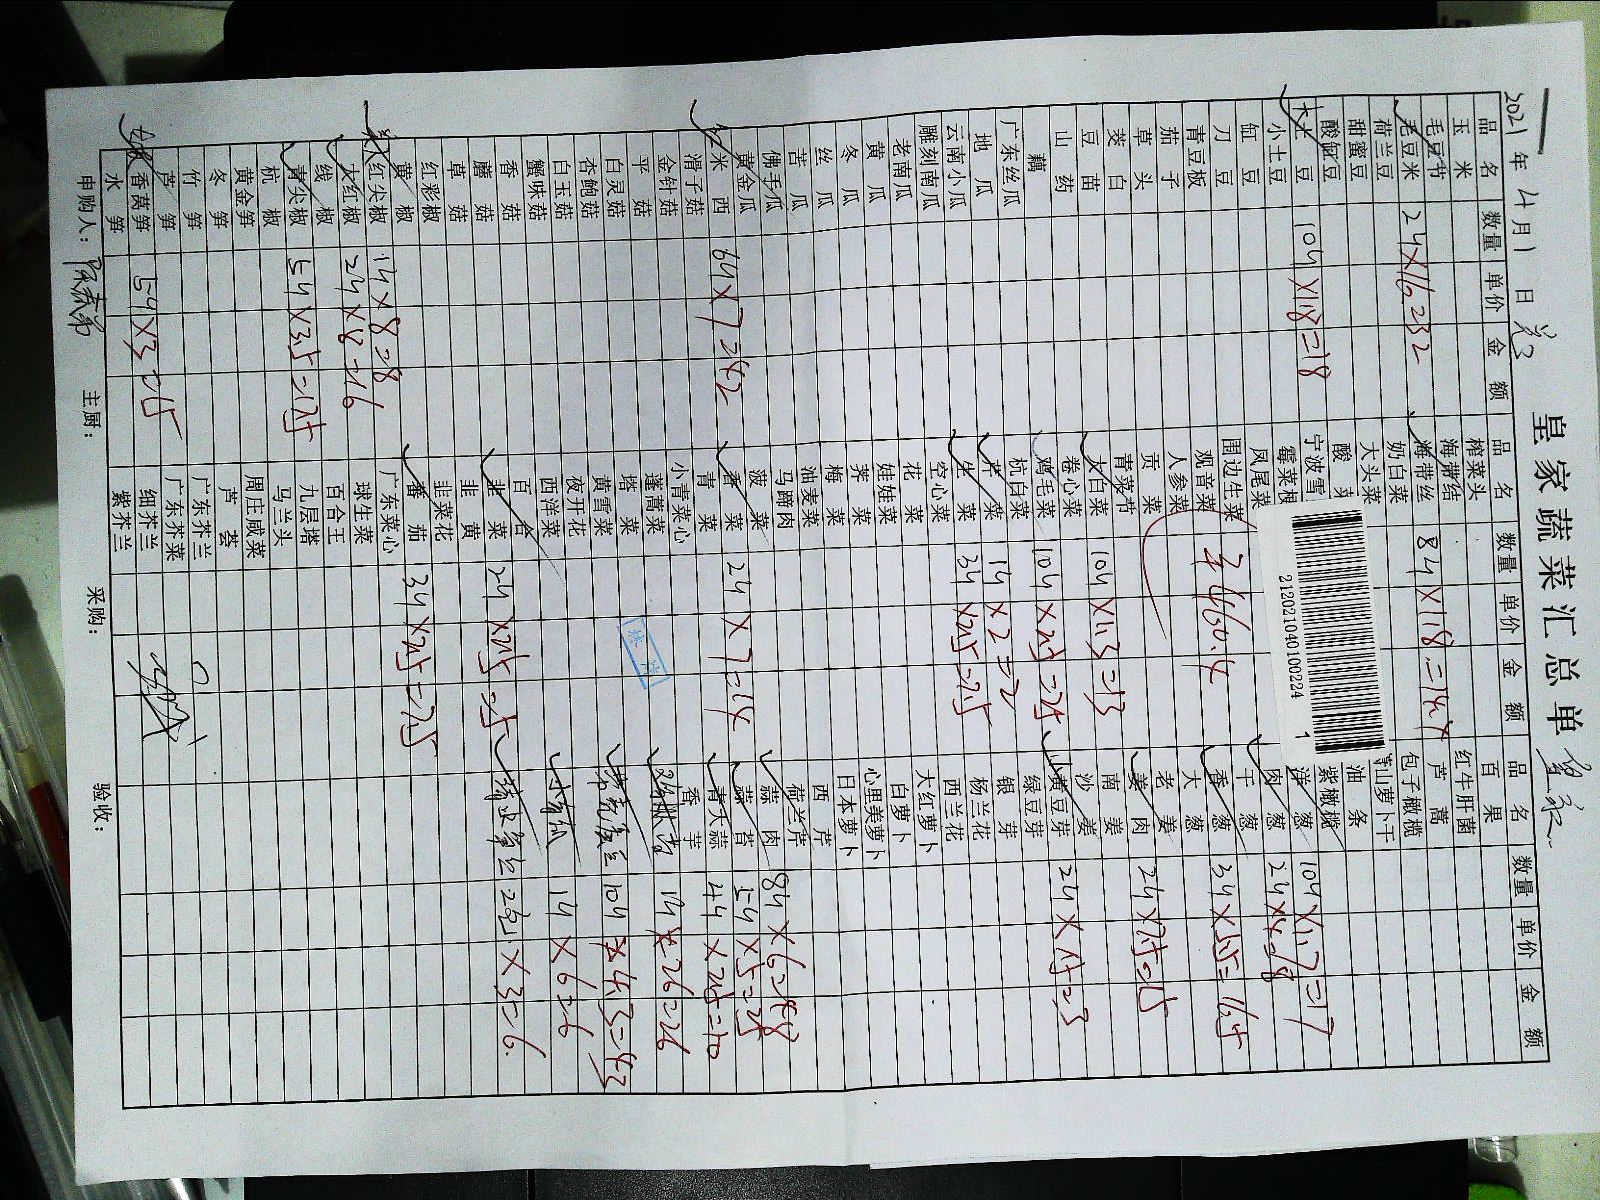 皇家蔬菜汇总单
2021年4月1日
品名 数量 单价 金额 品名 数量 单价 金额 品名 数量 单价 金额
玉米
毛豆节
毛豆米 24×16=32
荷兰豆
甜蜜豆
酸缸豆
大土豆 104×1.8=18
小土豆
缸豆
刀豆
青豆板
茄子
草头
茭白
豆苗
山药
藕
广东丝瓜
地瓜
云南小瓜
雕刻南瓜
老南瓜
黄瓜
冬瓜
丝瓜
苦瓜
佛手瓜
黄金瓜
西米 64×7=42
滑子菇
金针菇
平菇
白灵菇
杏鲍菇
白玉菇
蟹味菇
香菇
蘑菇
草菇
红彩椒
黄椒
红尖椒 14×8=8
大红椒 24×8=16
线椒
青尖椒 54×3.5=17.5
杭椒
黄金笋
冬笋
竹笋
芦笋
香莴笋 54×3=15
水笋
榨菜头
海带结
海带丝 84×1.8=14.4
奶白菜
大头菜
酸菜
宁波雪
霉菜根
凤尾菜
围边生菜
观音菜
人参菜
贡菜
青菜苔
大白菜 104×1.3=13
卷心菜
鸡毛菜 104×2.5=25
杭白菜
芹菜 14×2=2
生菜 34×2.5=7.5
空心菜
花菜
娃娃菜
荠菜
梅菜
油麦菜
马蹄肉
菠菜
香菜 24×7=14
青菜
小青菜心
蓬蒿菜
塔菜
黄雪菜
夜开花
西洋菜
百合
韭菜 24×2.5=5
韭黄
韭菜花
番茄 34×2.5=7.5
广东菜心
球生菜
百合王
九层塔
马兰头
周庄咸菜
芦荟
广东芥兰
广东芥菜
细芥兰
紫芥兰
百果
红牛肝菌
芦蒿
包子橄榄
萝卜干
油条
紫橄榄
洋葱 104×1.7=17
肉葱 24×4=8
干葱
香葱 34×5.5=16.5
大葱
老姜
姜肉 24×7.5=15
南姜
沙姜
黄豆芽 24×1.5=3
绿豆芽
银芽
杨兰花
西兰花
大红萝卜
白萝卜
心里美萝卜
日本萝卜
西芹
荷兰芹
蒜肉 84×6=48
蒜苔 54×5=25
青大蒜 44×2.5=10
香芋
14×26=26
104×4.3=43
14×6=6
2包×3=6
¥460.4
2120210401002241
申购人： 主厨： 采购： 验收：